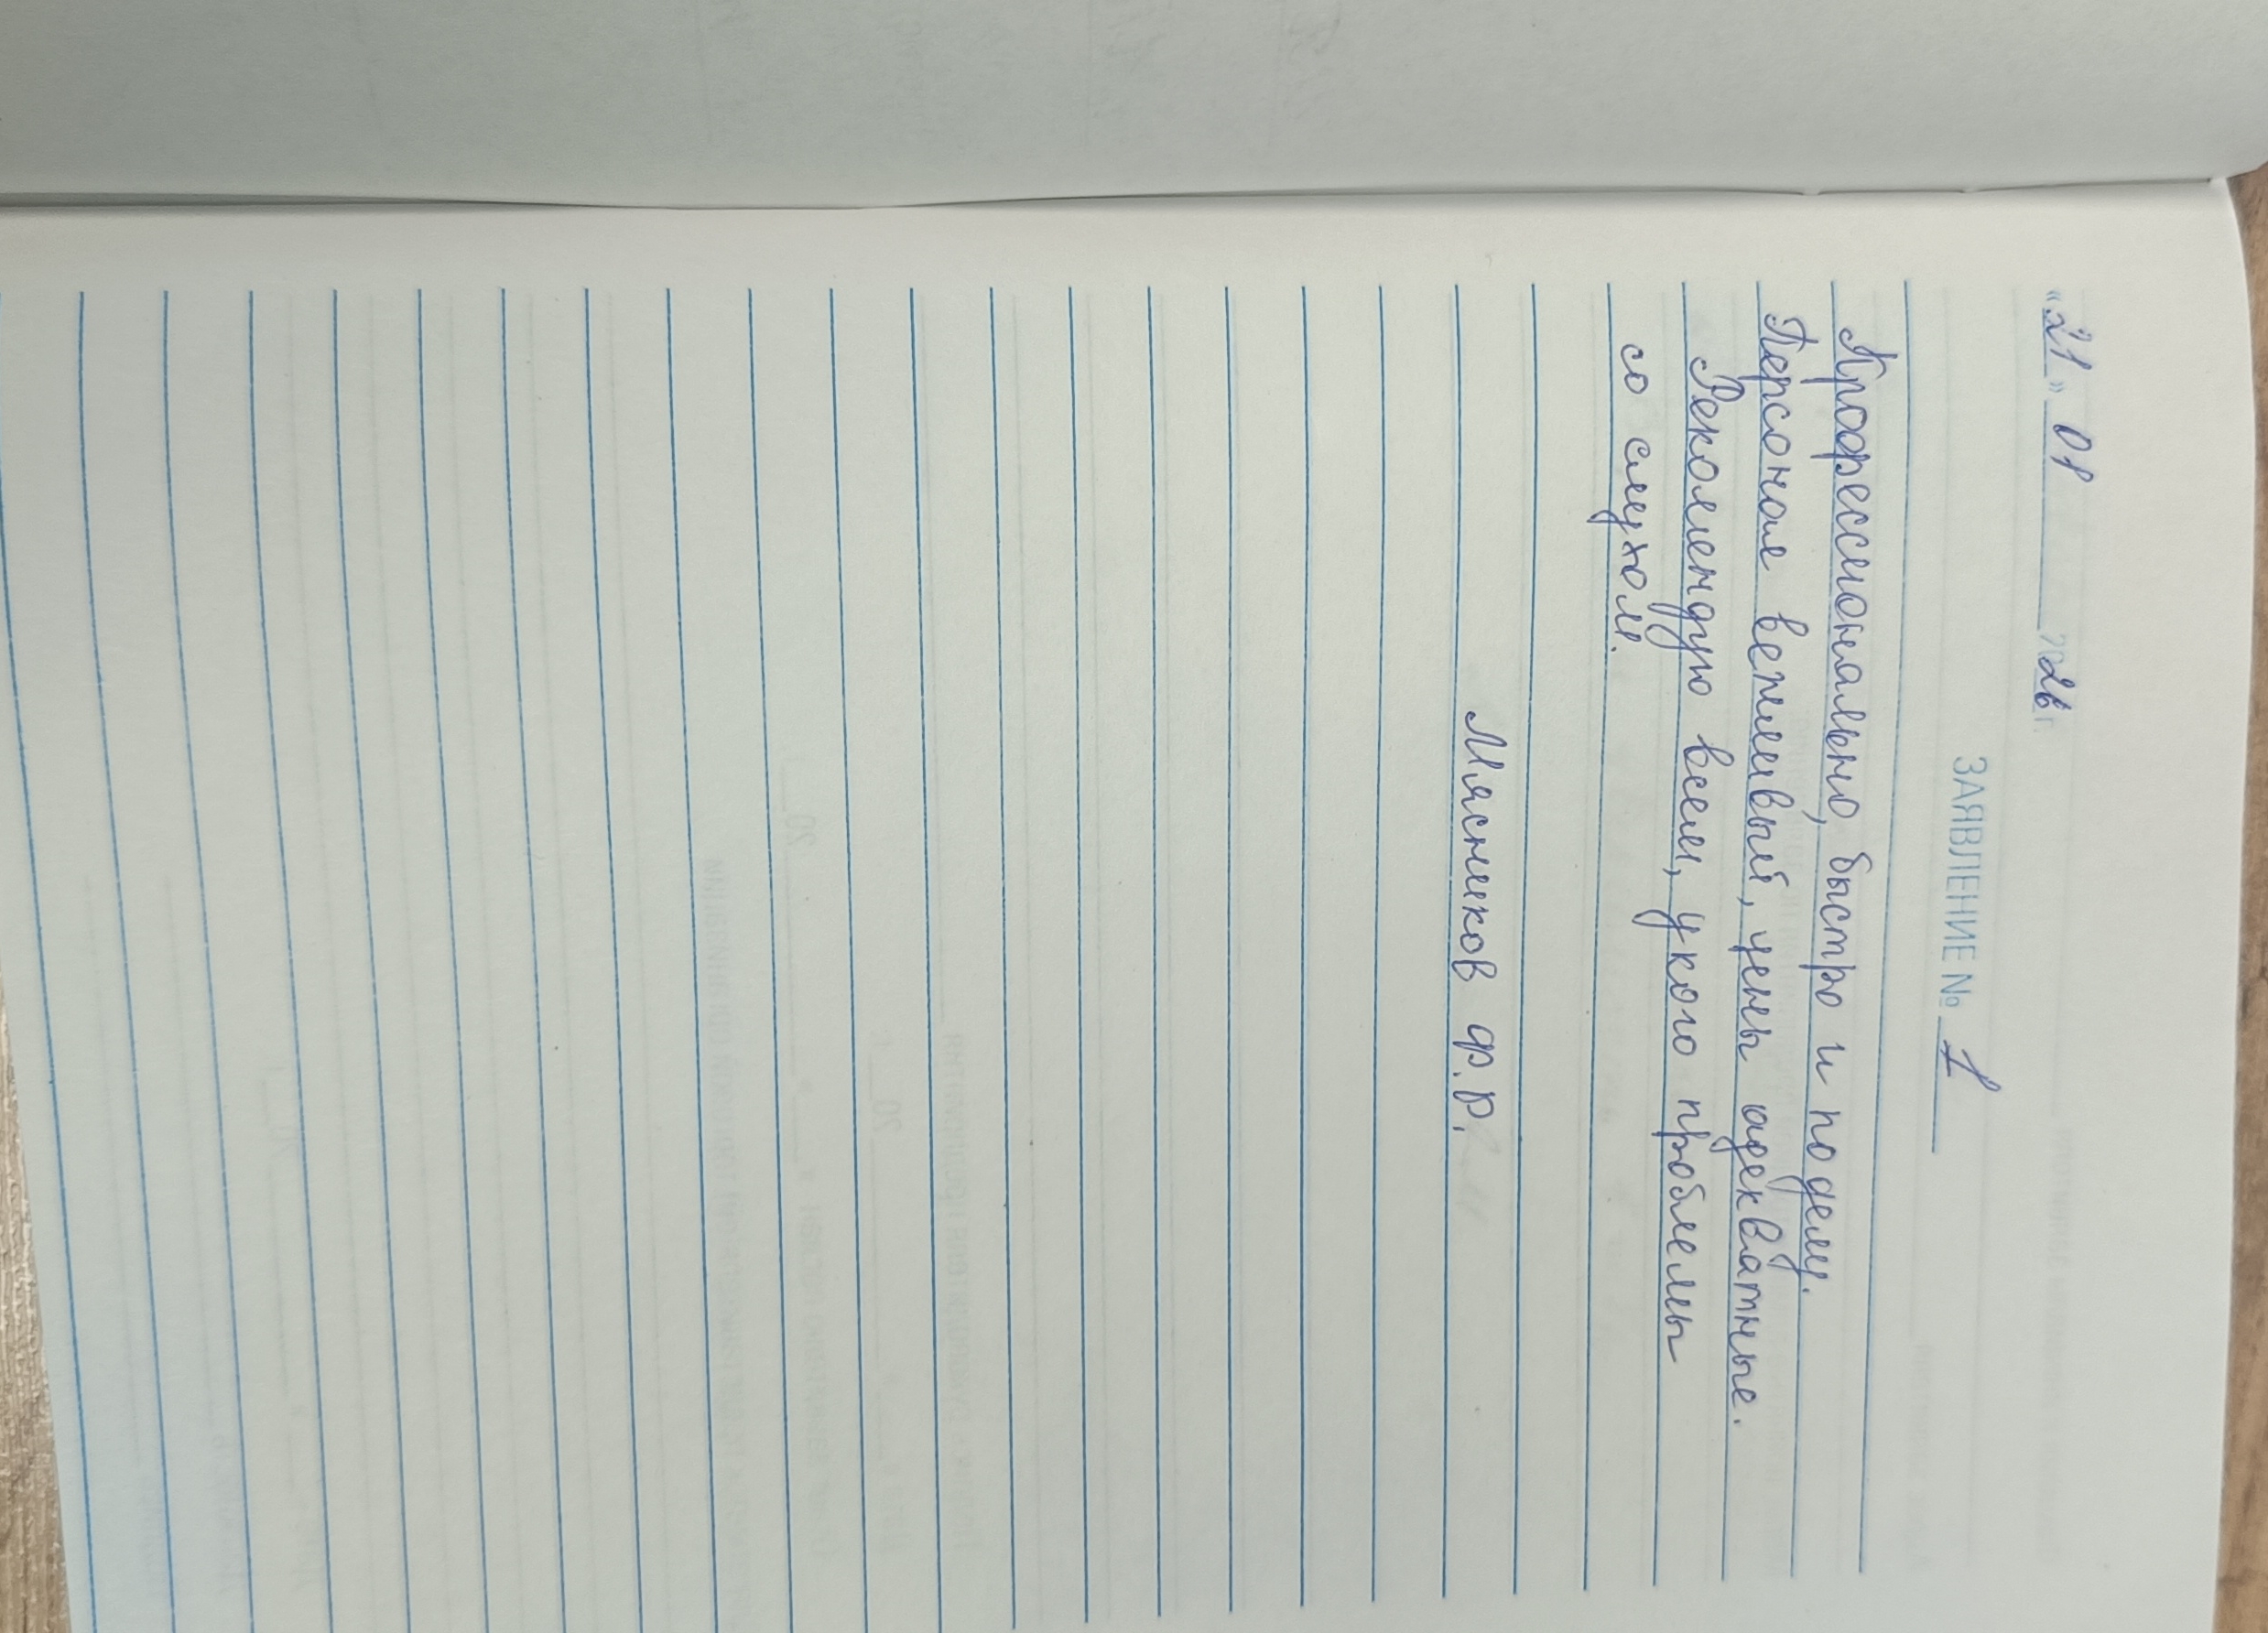 «21» 01 2026г.
ЗАЯВЛЕНИЕ № 1
Профессионально, быстро и по делу.
Персонал вежливый, цены адекватные.
Рекомендую всем, у кого проблемы
со слухом.
Мясников Ф.Р.